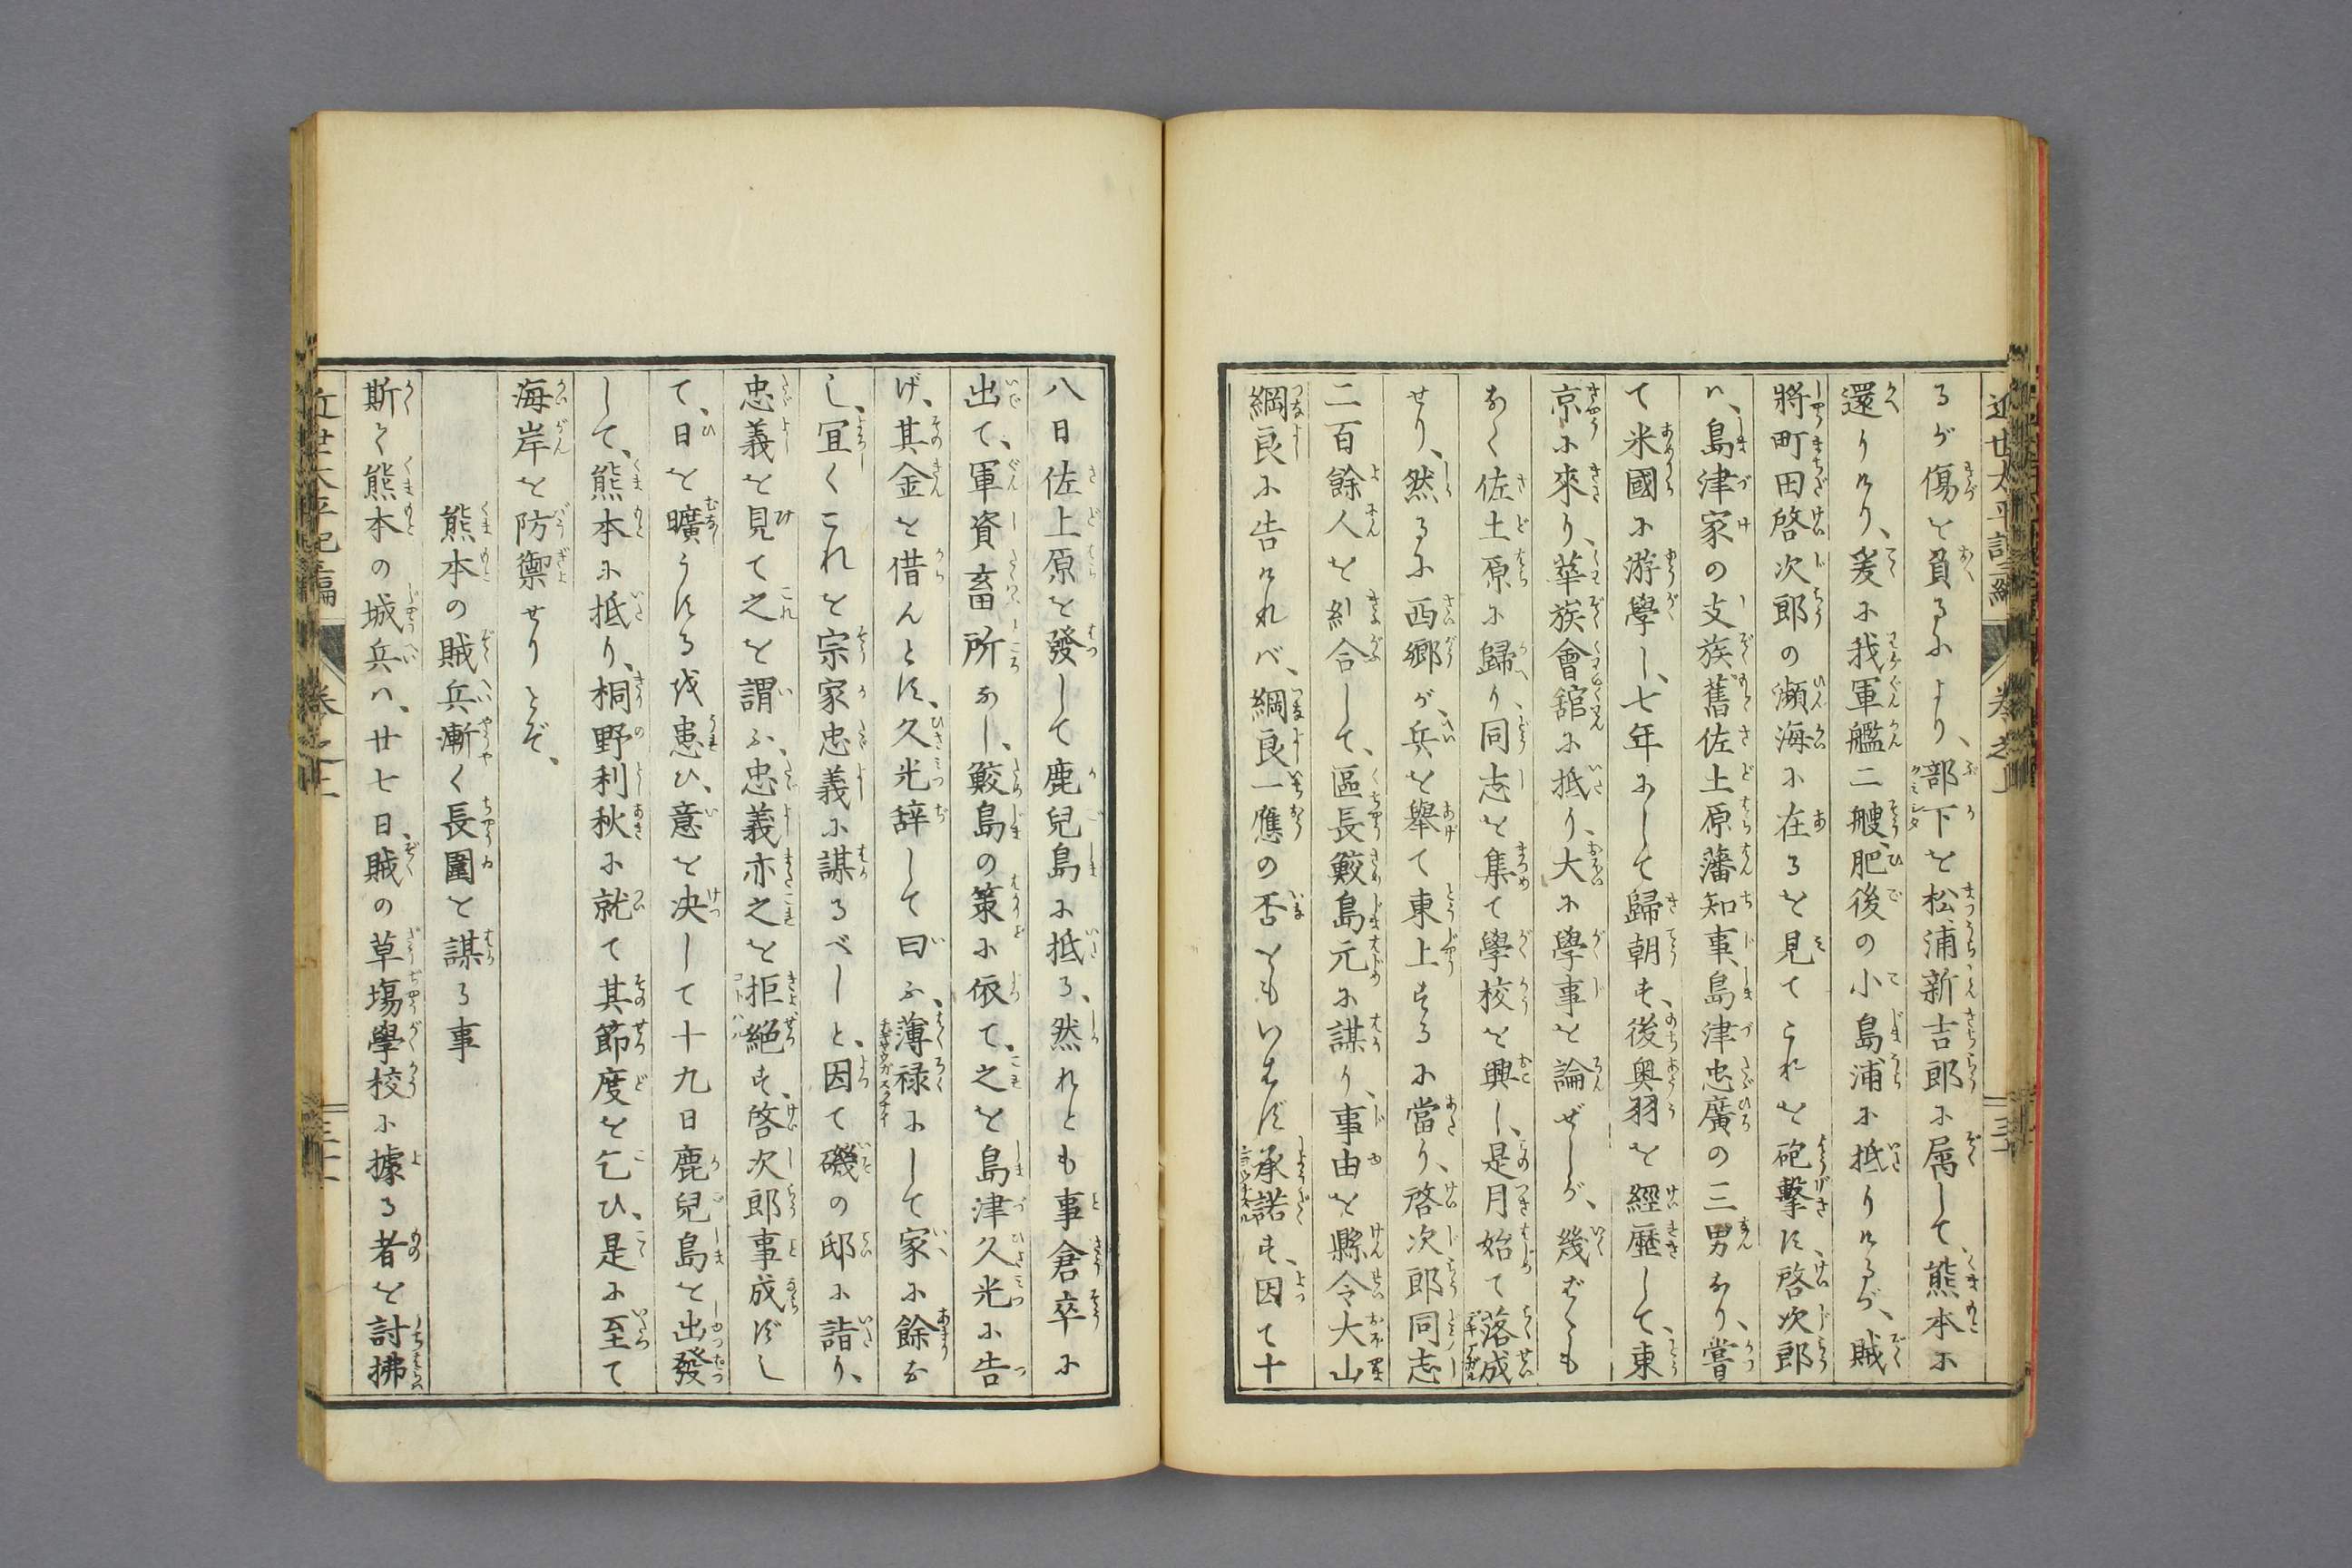 るが傷を負るにより、部下を松浦新吉郎に属して、熊本に
還りけり、爰に我軍艦二艘、肥後の小島浦に抵りけるが、賊
將町田啓次郎の瀬海に在るを見てこれを砲撃す、啓次郎
ハ、島津家の支族舊佐土原藩知事、島津忠廣の三男なり、嘗
て米國に游學し、七年にして歸朝す、後奥羽を經歴して、東
京に來り、華族會舘に抵り、大に學事を論ぜしが、幾ばくも
なく佐土原に歸り、同志を集て學校を興し、是月始て落成
せり、然るに西郷が、兵を舉て東上するに當り、啓次郎同志
二百餘人を糾合して、區長鮫島元に謀り、事由を縣令大山
綱良に告ければ、綱良一應の否ともいはず承諾す、因て十
八日佐土原を發して鹿兒島に抵る、然れとも事倉卒に
出て、軍資畜所なし、鮫島の策に依て、之を島津久光に告
げ、其金を借んとす、久光辞して曰ふ、薄禄にして家に餘な
し、宜くこれを宗家忠義に謀るべしと、因て磯の邸に詣り、
忠義を見て之を謂ふ、忠義亦之を拒絶す、啓次郎事成ずし
て、日を曠うする或患ひ、意を决して十九日鹿兒島を出發
して、熊本に抵り、桐野利秋に就て其節度を乞ひ、是に至て
海岸を防禦せりとぞ、
熊本の賊兵漸く長圍を謀る事
斯て熊本の城兵ハ、廿七日、賊の草塲學校に據る者を討拂